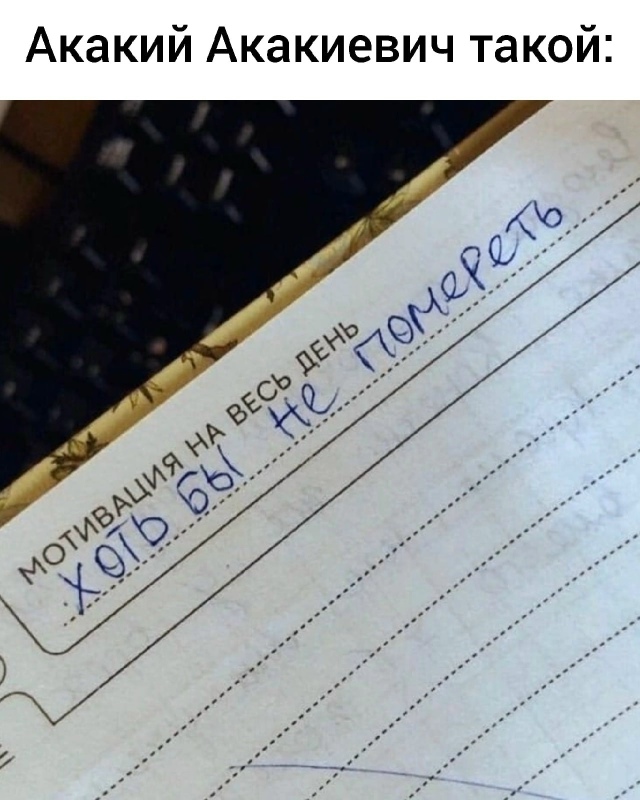 Акакий Акакиевич такой:
МОТИВАЦИЯ НА ВЕСЬ ДЕНЬ
ХОТЬ БЫ НЕ ПОМЕРЕТЬ